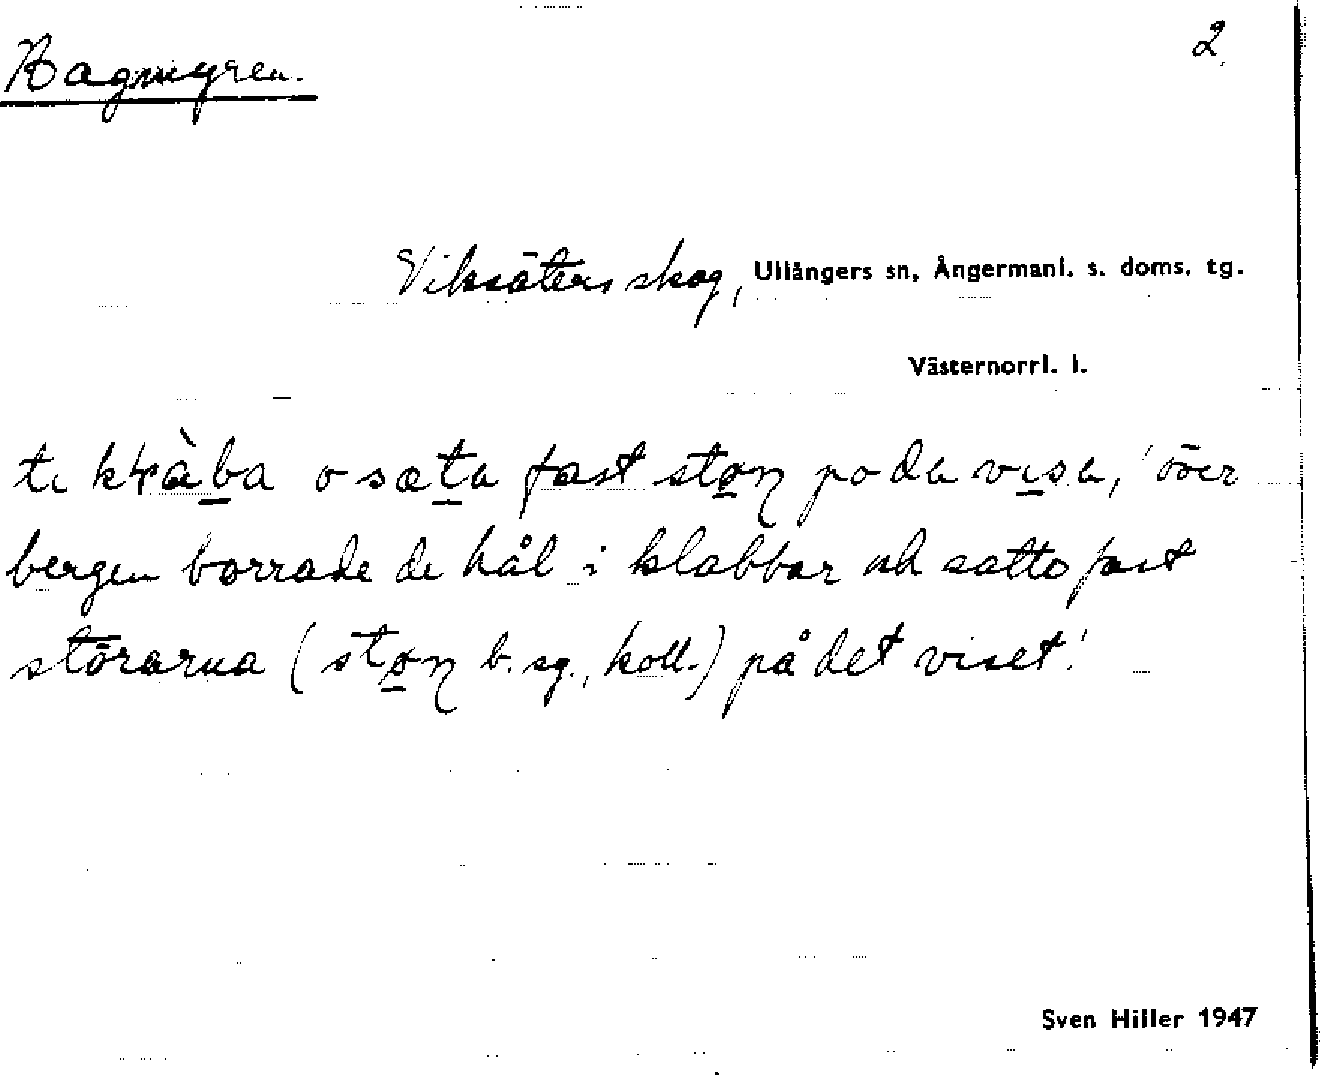 Hagmyren.
2
Viksäters skog, Ullångers sn, Ångermanl. s. doms. tg.
Västernorrl. l.
o sæta fast po da visa, 'över
bergen borrade de hål i klabbar och satte fast
störarna (b. sg., koll.) på det viset.'
Sven Hiller 1947